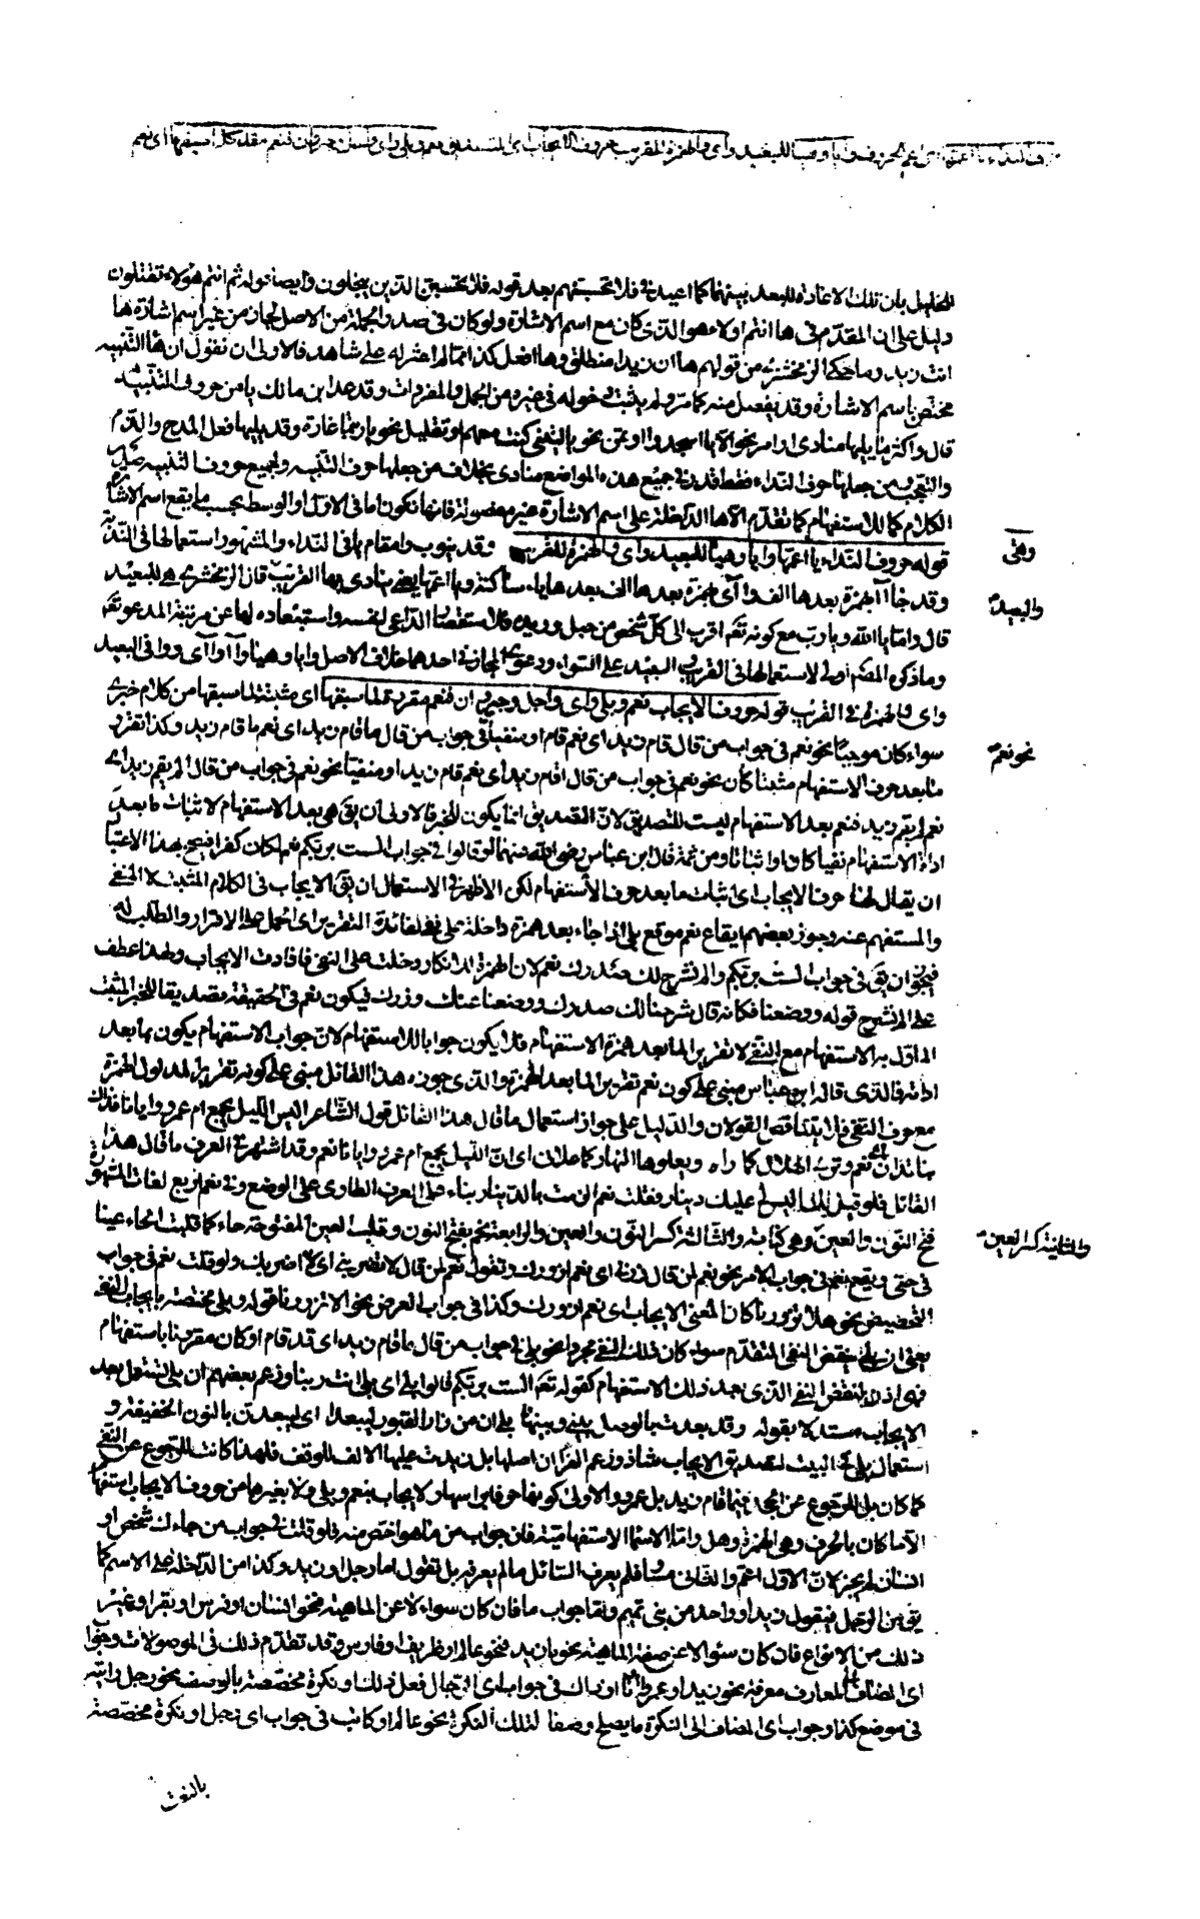 حروف النداء يا اعمها وايا وهيا للبعيد واى والهمزة للقريب حروف الايجاب
الخليل بان تلك الاعادة للبعد بينهما كما اعيد فى فلا تحسبنهم بعد قوله فلا تحسبن الذين يبخلون وايضا قوله ثم انتم هؤلاء تقتلون
دليل على ان المقدم فى ها انتم اولاء هو الذى كان مع اسم الاشارة ولو كان فى صدر الجملة من الاصل لجاز من غير اسم اشارة ها
انت زيد وما حكى الزمخشرى من قولهم ها ان زيدا منطلق وها افعل كذا مما لم اعثر له على شاهد فالاولى ان نقول ان ها التنبيه
مختص باسم الاشارة وقد يفصل منه كما مر ولم يثبت دخوله فى غيره من الجمل والمفردات وقد عد ابن مالك يا من حروف التنبيه
قال واكثر ما يليها منادى او امر نحو الا يا اسجدوا او تمن نحو يا ليتنى كنت معهم او تقليل نحو يا ربتما غارة وقد يليها فعل المدح والذم
والتعجب ومن جعلها حرف النداء فقط قدر فى جميع هذه المواضع منادى بخلاف من جعلها حرف التنبيه ولجميع حروف التنبيه صدر
الكلام كما للاستفهام كما تقدم الا ها الداخلة على اسم الاشارة غير مفصولة فانها تكون اما فى الاول او الوسط بحسب ما يقع اسم الاشارة
قوله حروف النداء يا اعمها وايا وهيا للبعيد واى والهمزة للقريب وقد ينوب وا مقام يا فى النداء والمشهور استعمالها فى الندبة
وهى
وقد جاء آ بهمزة بعدها الف وآى بهمزة بعدها الف بعدها ياء ساكنة ويا اعمها ينادى بها القريب قال الزمخشرى هى للبعيد
والبعيد
قال واما يا الله ويا رب مع كونه تعم اقرب الى كل شخص من حبل وريده فلاستقصار الداعى لنفسه واستبعاده لها عن مرتبة المدعو تعم
وما ذكره المصنف اولى لاستعمالها فى القريب والبعيد على السواء ودعوى المجاز فى احدهما خلاف الاصل وايا وهيا وآ وآى ووا فى البعيد
واى والهمزة فى القريب قوله حروف الايجاب نعم وبلى واى واجل وجير وان فنعم مقررة لما سبقها اى مثبتة لما سبقها من كلام خبرى
سواء كان موجبا نحو نعم فى جواب من قال قام زيد اى نعم قام او منفيا فى جواب من قال ما قام زيد اى نعم ما قام زيد وكذا تقرر
نحو نعم
ما بعد حرف الاستفهام مثبتا كان نحو نعم فى جواب من قال اقام زيد اى نعم قام زيد او منفيا نحو نعم فى جواب من قال الم يقم زيد اى
نعم لم يقم زيد فنعم بعد الاستفهام ليست للتصديق لان التصديق انما يكون للخبر فالاولى ان يق هى بعد الاستفهام لاثبات ما بعد
اداة الاستفهام نفيا كان او اثباتا ومن ثمة قال ابن عباس رضى الله عنهما لو قالوا فى جواب الست بربكم نعم لكان كفرا فيصح بهذا الاعتبار
ان يقال لها حرف الايجاب اى اثبات ما بعد حرف الاستفهام لكن الاظهر فى الاستعمال ان يق الايجاب فى الكلام المثبت لا المنفى
والمستفهم عنه وجوز بعضهم ايقاع نعم موقع بلى اذا جاء بعد همزة داخلة على نفى لفائدة التقرير اى الحمل على الاقرار والطلب له
فيجوز ان يق فى جواب الست بربكم والم نشرح لك صدرك نعم لان الهمزة للانكار دخلت على النفى فافادت الايجاب ولهذا عطف
على الم نشرح قوله ووضعنا فكانه قال شرحنا لك صدرك ووضعنا عنك وزرك فيكون نعم فى الحقيقة تصديقا للخبر المثبت
المأول به الاستفهام مع النفى لا تقريرا لما بعد همزة الاستفهام فلا يكون جوابا للاستفهام لان جواب الاستفهام يكون بما بعد
اداته فالذى قاله ابن عباس مبنى على كون نعم تقريرا لما بعد الهمزة والذى جوزه هذا القائل مبنى على كونه تقريرا لمدلول الهمزة
مع حرف النفى فلا يتناقض القولان والدليل على جواز استعمال ما قال هذا القائل قول الشاعر اليس الليل يجمع ام عمرو وايانا فذاك
بنا تدان نعم وترى الهلال كما اراه ويعلوها النهار كما علانى اى ان الليل يجمع ام عمرو وايانا نعم وقد اشتهر فى العرف ما قال هذا
القائل فلو قيل لك اليس لى عليك دينار فقلت نعم الزمت بالدينار بناء على العرف الطارى على الوضع وفى نعم اربع لغات المشهورة
فتح النون والعين وهى كنانية والثالثة كسر النون والعين والرابعة نحم بفتح النون وقلب العين المفتوحة حاء كما قلبت الحاء عينا
والثانية كسر العين
فى حتى ويقع نعم فى جواب الامر نحو نعم لمن قال زرنى اى نعم ازورك وتقول نعم لمن قال لا تضربنى اى لا اضربك ولو قلت نعم فى جواب
التحضيض نحو هلا تزورنا كان المعنى الايجاب اى نعم ازورك وكذا فى جواب العرض نحو الا تزورنا قوله وبلى مختصة بايجاب النفى
يعنى ان بلى ينقض النفى المتقدم سواء كان ذلك النفى مجردا نحو بلى فى جواب من قال ما قام زيد اى قد قام او كان مقرونا باستفهام
فهى اذن لنقض النفى الذى بعد ذلك الاستفهام كقوله تعم الست بربكم قالوا بلى اى بلى انت ربنا وزعم بعضهم ان بلى تستعمل بعد
الايجاب مستدلا بقوله وقد بعدت بالوصل بينى وبينها بلى ان من زار القبور ليبعدا اى ليبعدن بالنون الخفيفة و
استعمال بلى فى البيت لتصديق الايجاب شاذ وزعم الفراء ان اصلها بل زيدت عليها الالف للوقف فلهذا كانت للرجوع عن النفى
كما كان بل للرجوع عن الجحد فى ما قام زيد بل عمرو والاولى كونها حرفا براسها ولا يجاب بنعم وبلى ولا بغيرهما من حروف الايجاب استفهام
الا ما كان بالحرف وهى الهمزة وهل واما الاسماء الاستفهامية فان جواب من ما هو اخص منه فلو قلت فى جواب من جاءك شخص او
انسان لم يجز لان الاول اعم والثانى مساو فلم يعرف السائل ما لم يعرفه بل تقول اما رجل او زيد وكذا من الداخلة على الاسم كما
يق من الرجل فيقول زيد او واحد من بنى تميم واما جواب ما فان كان سؤالا عن الماهية فنحو انسان او فرس او بقر او غير
ذلك من الانواع فان كان سئوالا عن صفة الماهية نحو ما زيد فنحو عالم او ظريف او فارس وقد تقدم ذلك فى الموصولات وجواب
اى المضاف الى المعارف معرفة نحو زيد او عمرو او انا او ذاك فى جواب اى الرجال فعل ذلك او نكرة مختصة بالوصف نحو رجل رايته
فى موضع كذا وجواب اى المضاف الى النكرة ما يصلح وصفا لتلك النكرة نحو عالم او كاتب فى جواب اى رجل او نكرة مخصصة
بالنعت